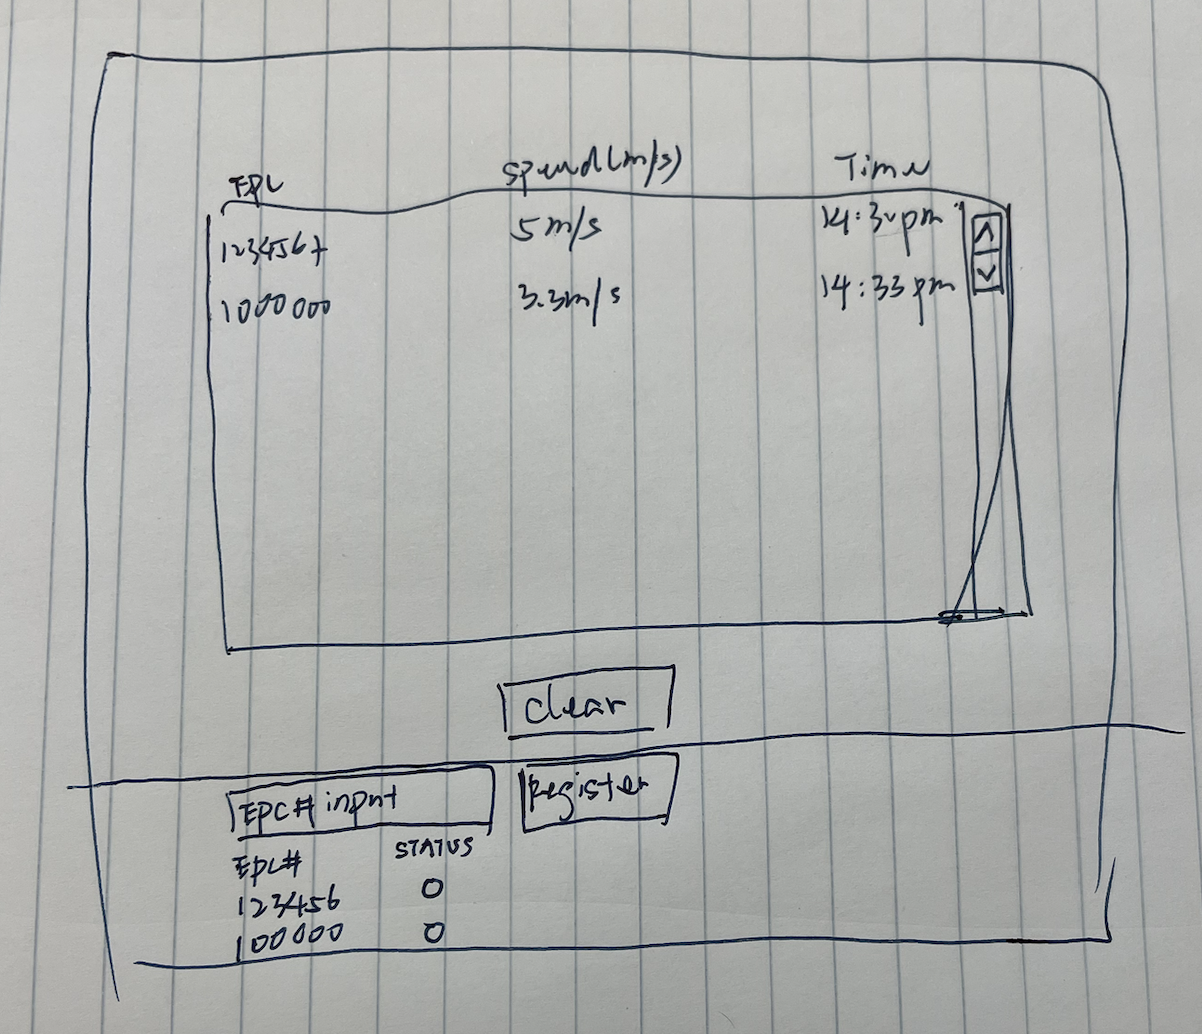 EPC Speed(m/s) Time
1234567 5 m/s 14:30 pm
1000000 3.3m/s 14:33 pm
Clear
EPC# input Register
EPC# STATUS
123456 O
100000 O